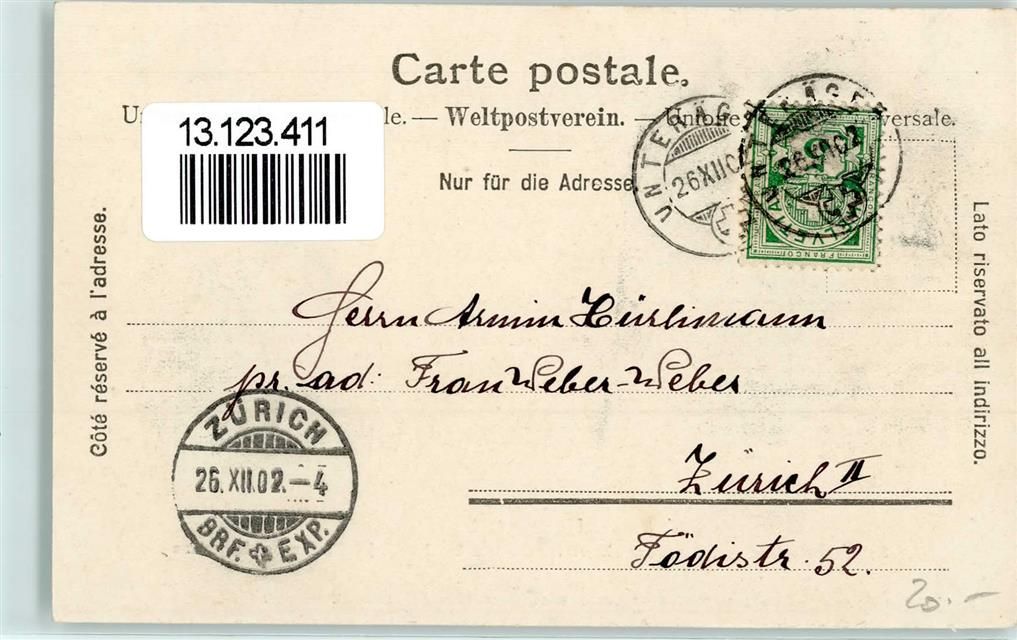 Carte postale.
13.123.411
le. — Weltpostverein. — Unione versale.
Nur für die Adresse
UNTERÄG
26 XII 0
Côté réservé à l'adresse.
Lato riservato all indirizzo.
FRANCO
Herrn Armin Hürlimann
pr. ad: Frau Weber-Weber
ZÜRICH
26. XII. 02. – 4
BRF. EXP.
Zürich II
Tödistr. 52.
20.–